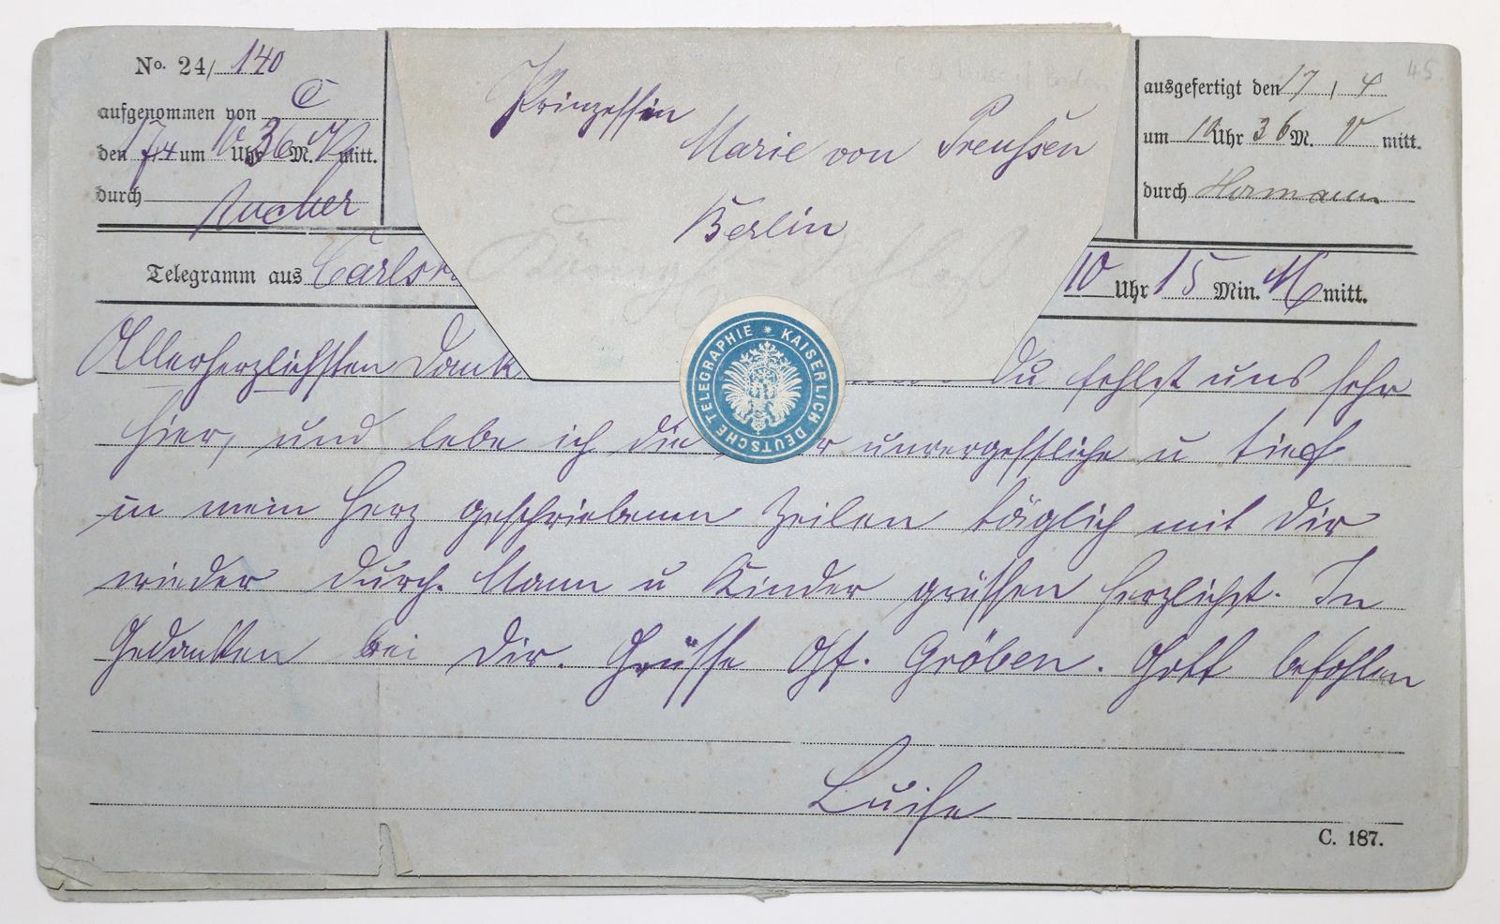 No. 24/ 140
aufgenommen von C
den 17/4 um 10 Uhr 36 M. V mitt.
durch
Prinzessin
Marie von Preußen
Berlin
ausgefertigt den 17/4
um 10 Uhr 36 M. V mitt.
durch Hormann
45
Telegramm aus Carlsr
10 Uhr 15 Min. M mitt.
KAISERLICH DEUTSCHE TELEGRAPHIE
Allerherzlichsten Dank Du fehlst uns sehr
hier, und lebe ich die unvergeßliche u tief
in mein Herz geschriebenen Zeilen täglich mit Dir
wieder durch. Mann u Kinder grüßen herzlichst. In
Gedanken bei Dir. Grüße Gf. Gröben. Gott befohlen
Luise
C. 187.